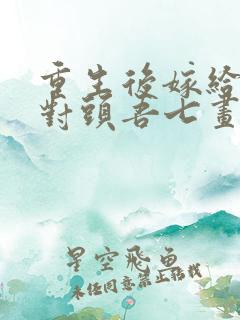 重生後嫁給
對頭吾七畫
星空飛魚
未经同意禁止转载